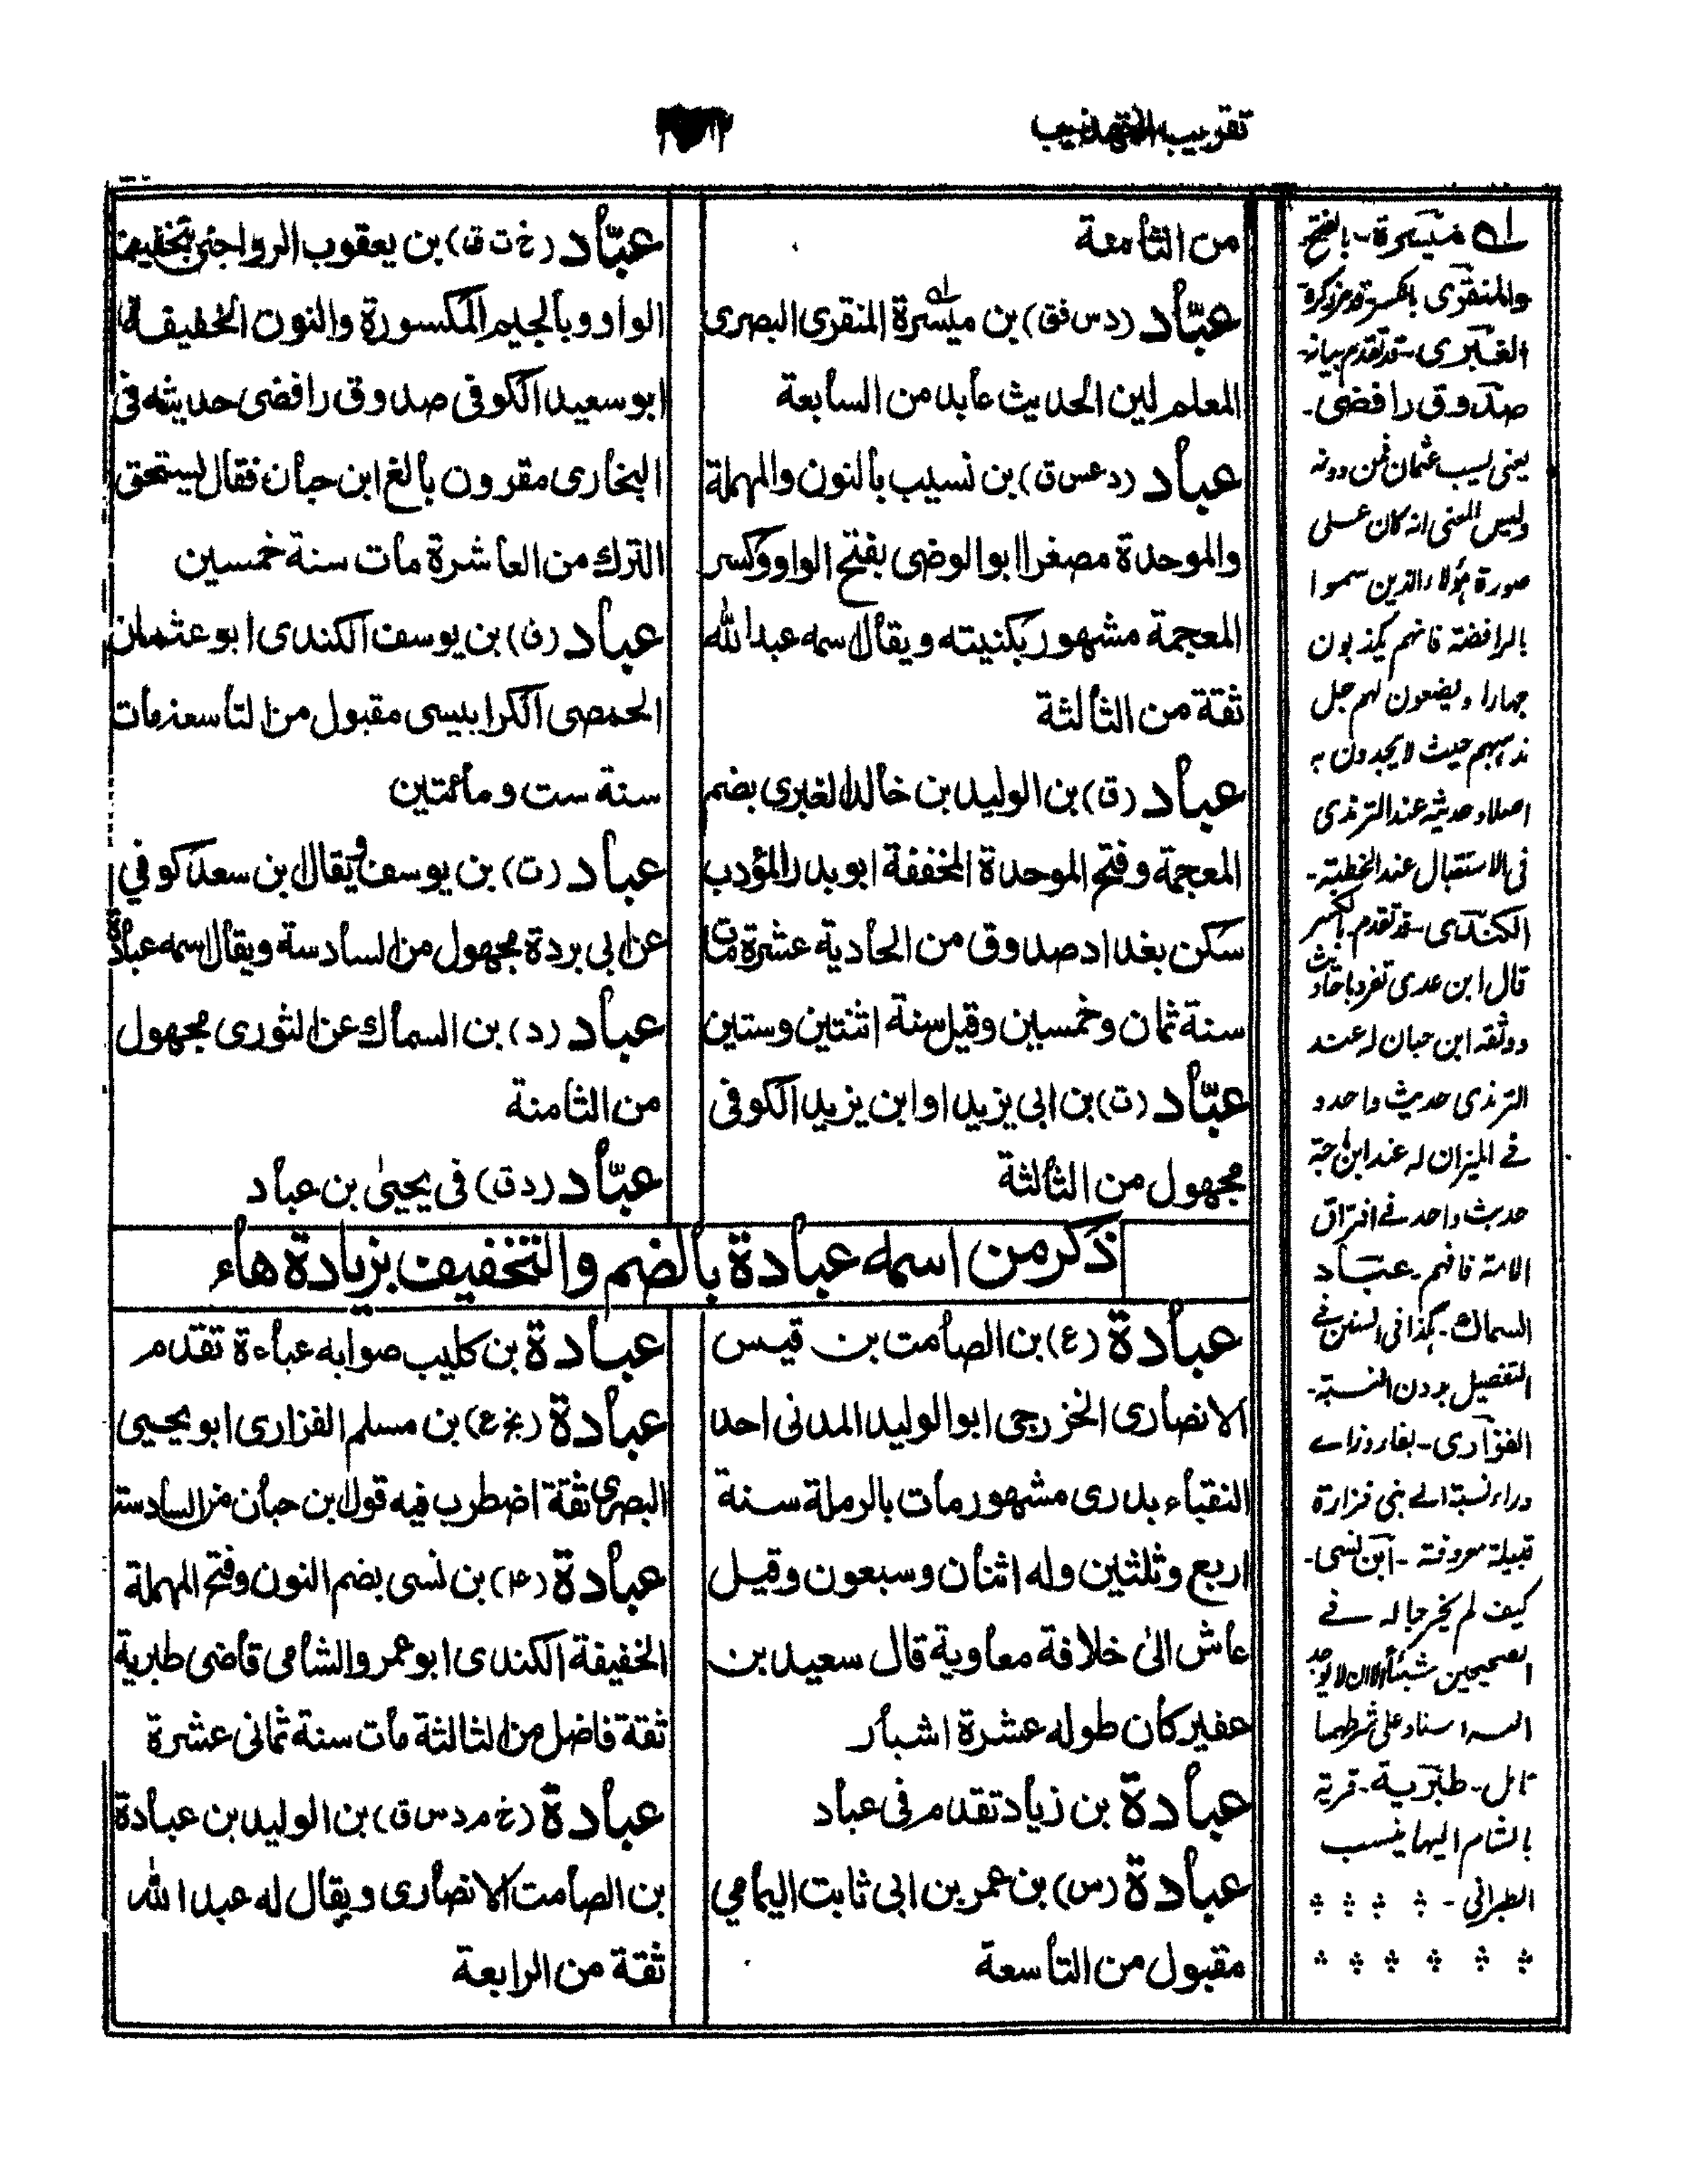 تقريب التهذيب
من الثامنة
عبّاد (د س فق) بن ميسرة المنقرى البصرى
المعلم لين الحديث عابد من السابعة
عباد (د عس ق) بن نسيب بالنون والمهملة
والموحدة مصغرا ابو الوضى بفتح الواو وكسر
المعجمة مشهور بكنيته ويقال اسمه عبد الله
ثقة من الثالثة
عباد (ق) بن الوليد بن خالد الغبرى بضم
المعجمة وفتح الموحدة المخففة ابو بدر المؤدب
سكن بغداد صدوق من الحادية عشرة مات
سنة ثمان وخمسين وقيل سنة اثنتين وستين
عبّاد (ت) بن ابى يزيد او ابن يزيد الكوفى
مجهول من الثالثة
عبّاد (خ ت ق) بن يعقوب الرواجنى بتخفيف
الواو وبالجيم المكسورة والنون الخفيفة
ابو سعيد الكوفى صدوق رافضى حديثه فى
البخارى مقرون بالغ ابن حبان فقال يستحق
الترك من العاشرة مات سنة خمسين
عباد (ن) بن يوسف الكندى ابو عثمان
الحمصى الكرابيسى مقبول من التاسعة مات
سنة ست ومائتين
عباد (ت) بن يوسف ويقال بن سعد كوفي
عن ابى بردة مجهول من السادسة ويقال اسمه عبادة
عباد (د) بن السماك عن الثورى مجهول
من الثامنة
عبّاد (د ق) فى يحيىٰ بن عباد
ذكر من اسمه عبادة بالضم والتخفيف بزيادة هاء
عبادة (ع) بن الصامت بن قيس
الانصارى الخزرجى ابو الوليد المدنى احد
النقباء بدرى مشهور مات بالرملة سنة
اربع وثلثين وله اثنان وسبعون وقيل
عاش الىٰ خلافة معاوية قال سعيد بن
عفير كان طوله عشرة اشبار
عبادة بن زياد تقدم فى عباد
عبادة (س) بن عمر بن ابى ثابت اليمامي
مقبول من التاسعة
عبادة بن كليب صوابه عباءة تقدم
عبادة (بخ ع) بن مسلم الفزارى ابو يحيى
البصرى ثقة اضطرب فيه قول بن حبان من السادسة
عبادة (ع) بن نسى بضم النون وفتح المهملة
الخفيفة الكندى ابو عمرو الشامى قاضى طبرية
ثقة فاضل من الثالثة مات سنة ثمانى عشرة
عبادة (خ م د س ق) بن الوليد بن عبادة
بن الصامت الانصارى ويقال له عبد الله
ثقة من الرابعة
له ميسرة - بالفتح
والمنقرى بالكسر
الغبرى - قد تقدم بيانه -
صدوق رافضى -
يعنى يسب عثمان فمن دونه
وليس المعنى انه كان على
صورة هؤلاء الذين سموا
بالرافضة فانهم يكذبون
جهارا ويضعون لهم جل
مذهبهم حيث لا يجدون به
اصلا وحديثه عند الترمذى
فى الاستقبال عند الخطبة -
الكندى - قد تقدم بالكسر
قال ابن عدى تفرد باحاديث
ووثقه ابن حبان له عند
الترمذى حديث واحد و
فے الميزان له عند ابن ماجة
حديث واحد فے افتراق
الامة فافهم - عبّاد
السماك - كذا فى السنن فے
التفصيل بدون النسبة -
الفزارى - بفاء وزاے
وراء نسبة الے بنى فزارة
قبيلة معروفة - ابن نسى -
كيف لم يخرجا له فے
الصحيحين شيئا الا ان لا يوجد
اليه اسناد على شرطهما
تامل - طبرية - قرية
بالشام اليها ينسب
الطبرانى -